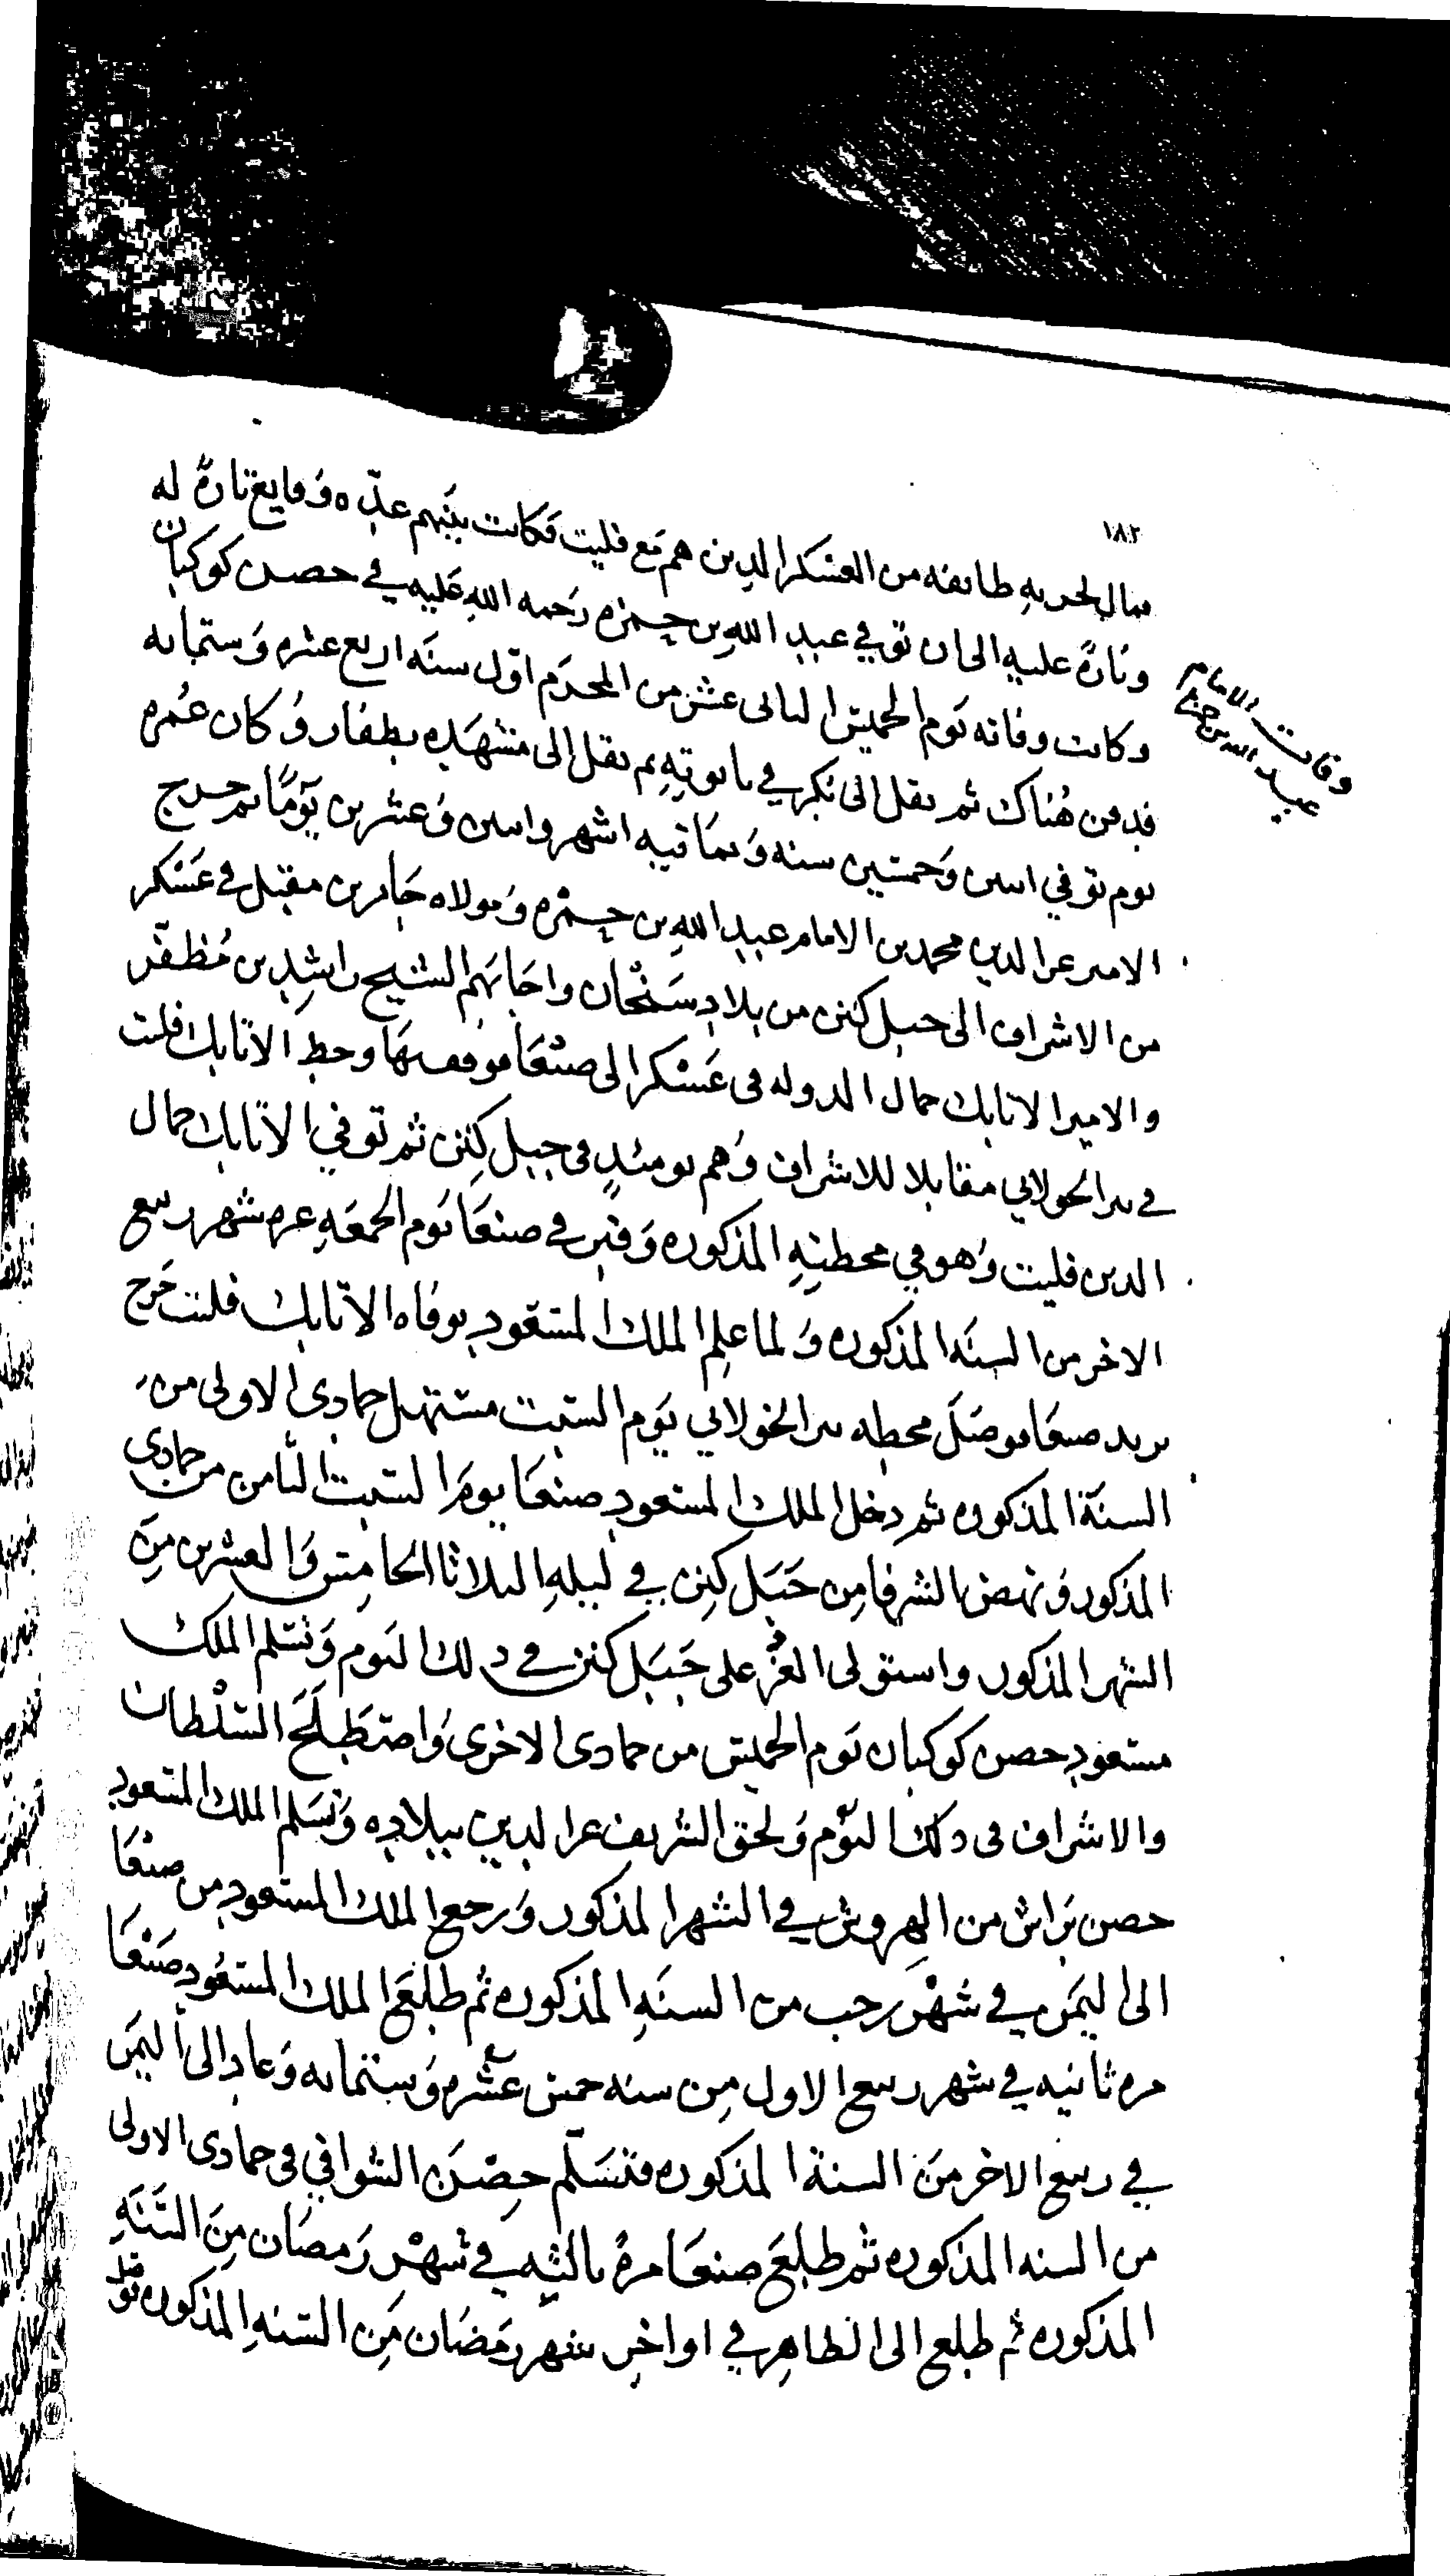 ١٨٢
ممال لحربه طائفه من العسكر الذين هم مع فليت فكانت بينهم عده وقايع تارةً له
وتارةً عليه الى ان توفي عبد الله بن حمزه رحمه الله عليه في حصن كوكبان
وكانت وفاته يوم الخميس الثاني عشر من المحرم اول سنه اربع عشره وستمايه
فدفن هُناك ثم نقل الى بكر في تابوته ثم نقل الى مشهده بظفار وكان عمره
يوم توفي اثنين وخمسين سنه وثمانيه اشهر واثنين وعشرين يومًا ثم خرج
الامير عز الدين محمد بن الامام عبد الله بن حمزه ومولاه جابر بن مقبل في عسكر
من الاشراف الى جبل كنن من بلاد سنحان واجابهم الشيخ راشد بن مُظفّر
والامير الاتابك جمال الدوله في عسكر الى صنعا فوقف بها وحط الاتابك فليت
في بير الخولاني مقابلا للاشراف وهم يومئذٍ في جبل كنن ثم توفي الاتابك جمال
الدين فليت وهو في محطته المذكوره وقبر في صنعا يوم الجمعه غره شهر ربيع
الاخر من السنه المذكوره ولما علم الملك المسعود بوفاه الاتابك فليت خرج
يريد صنعا فوصل محطه بير الخولاني يوم السبت مستهل جمادى الاولى من
السنة المذكوره ثم دخل الملك المسعود صنعا يوم السبت الثامن من جمادى
المذكور ونهض الشرفا من جبل كنن في ليله الثلاثا الخامس والعشرين من
الشهر المذكور واستولى الغز على جبل كنن في ذلك اليوم وتسلم الملك
مسعود حصن كوكبان يوم الخميس من جمادى الاخرى واصطلح السلطان
والاشراف في ذلك اليوم ولحق الشريف عز الدين ببلاده وتسلم الملك المسعود
حصن براش من الهروش في الشهر المذكور ورجع الملك المسعود من صنعا
الى اليمن في شهر رجب من السنه المذكوره ثم طلع الملك المسعود صنعا
مره ثانيه في شهر ربيع الاول من سنه خمس عشره وستمايه وعاد الى اليمن
في ربيع الاخر من السنة المذكوره فتسلم حصن الشوافي في جمادى الاولى
من السنه المذكوره ثم طلع صنعا مرهً ثالثه في شهر رمضان من السنه
المذكوره ثم طلع الى الظاهر في اواخر شهر رمضان من السنه المذكوره
وفات الامام
عبد الله بن حمزه